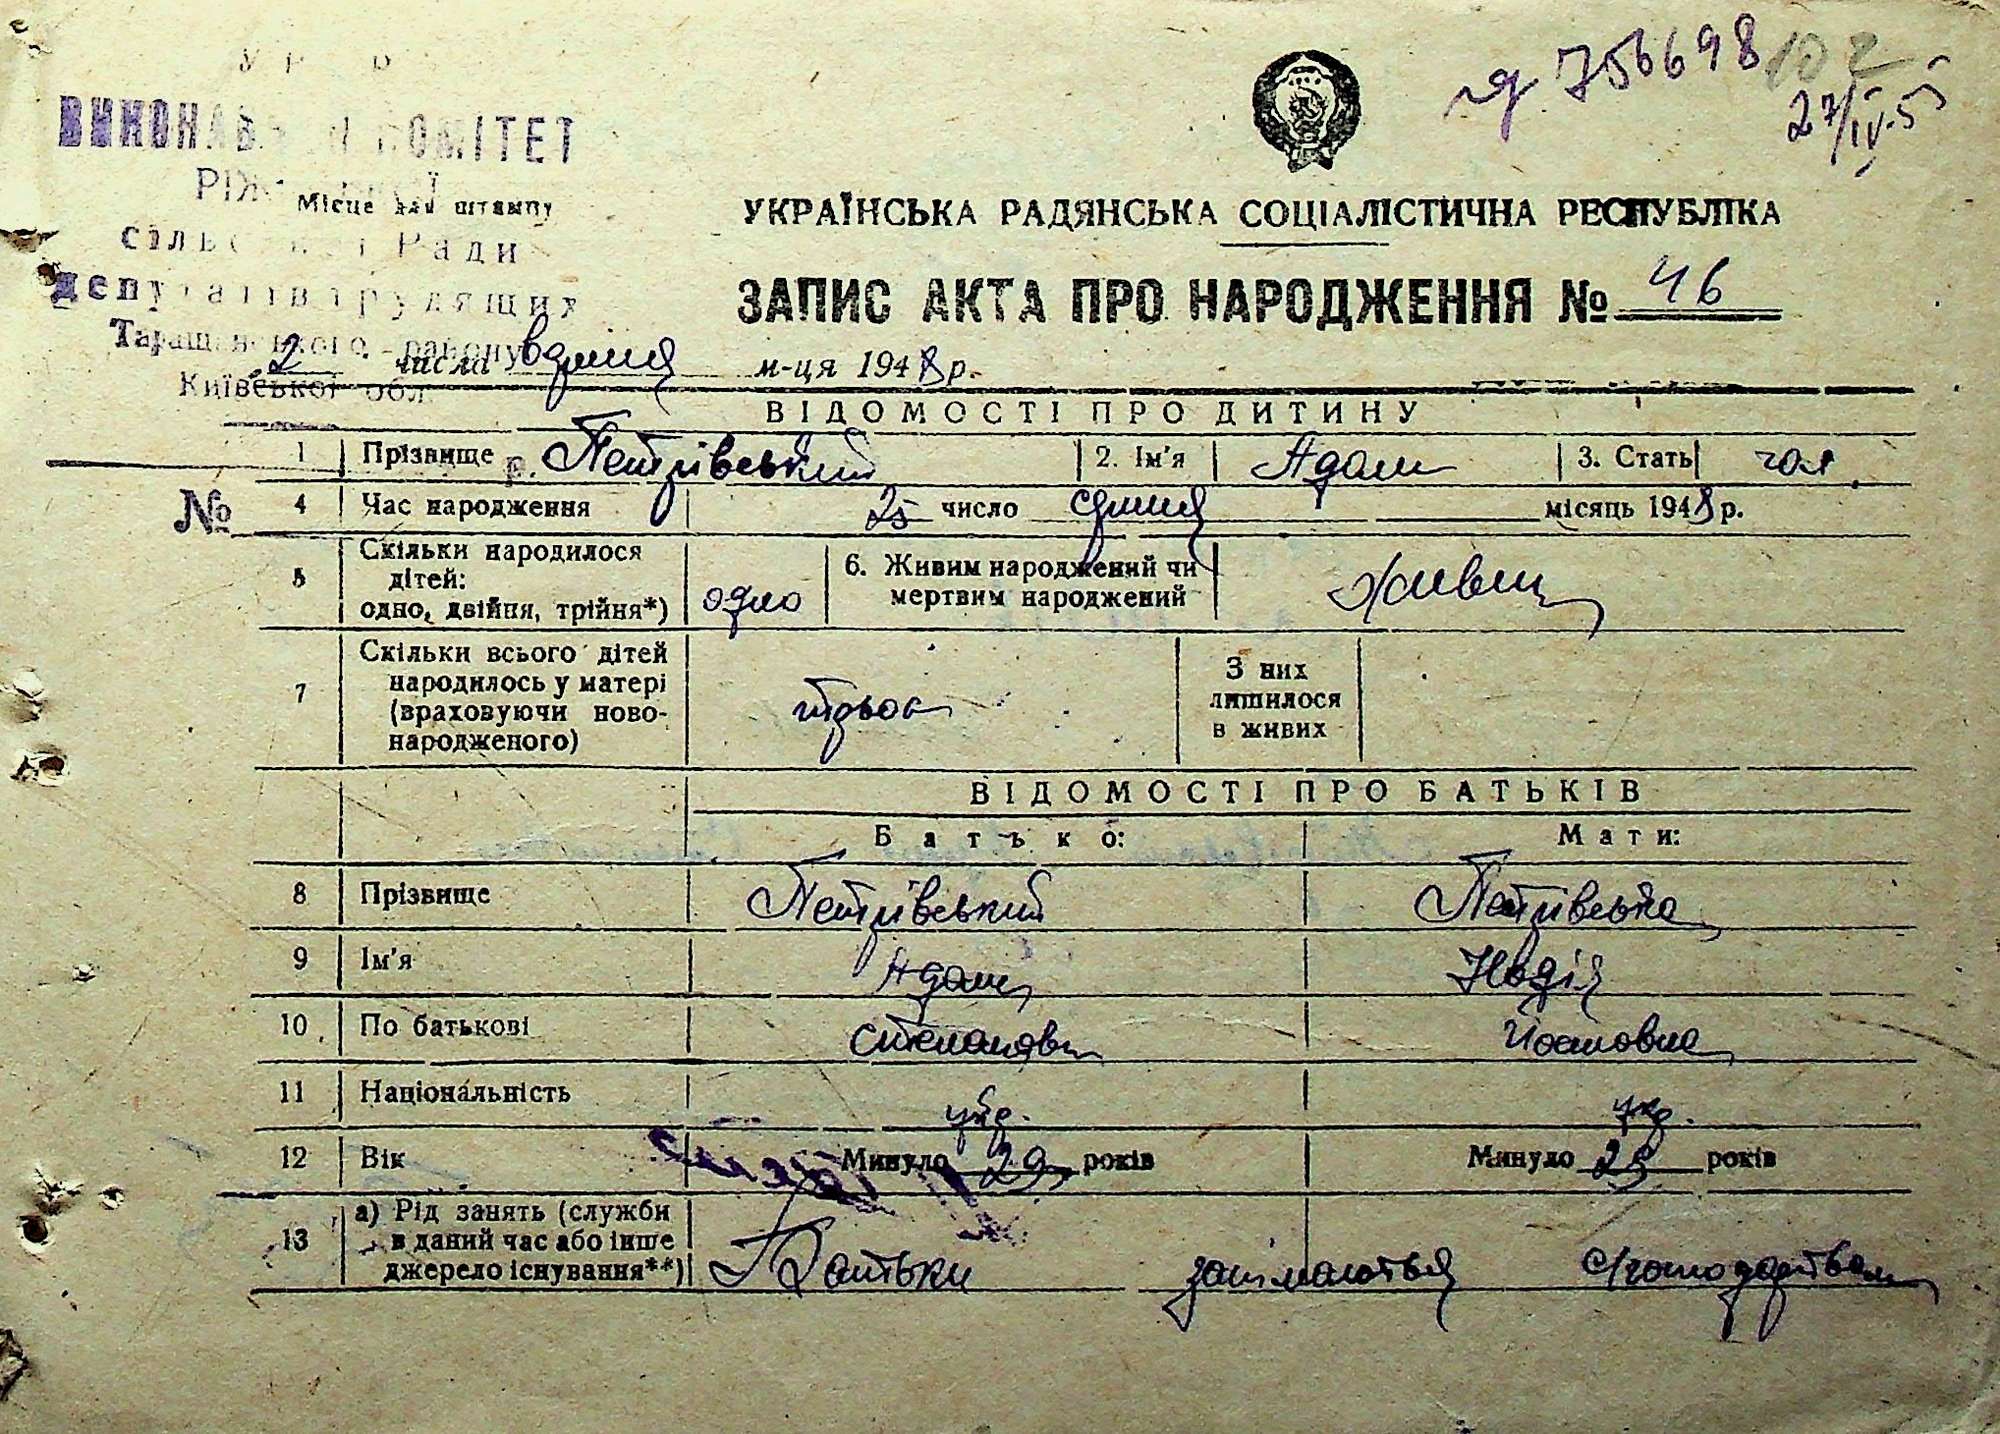 УРСР
ВИКОНАВЧИЙ КОМІТЕТ
сільської Ради
депутатів трудящих
Таращанського району
Київської обл.
Місце для штампу
756698 102
27/IV.55
УКРАЇНСЬКА РАДЯНСЬКА СОЦІАЛІСТИЧНА РЕСПУБЛІКА
ЗАПИС АКТА ПРО НАРОДЖЕННЯ № 46
2 числа м-ця 1948 р.
ВІДОМОСТІ ПРО ДИТИНУ
1 Прізвище Петрівський 2. Ім'я Адам 3. Стать чол
№ 4 Час народження 25 число місяць 1948 р.
5 Скільки народилося дітей: одно, двійня, трійня*) одно 6. Живим народжений чи мертвим народжений живим
7 Скільки всього дітей народилось у матері (враховуючи новонародженого) троє З них лишилося в живих
ВІДОМОСТІ ПРО БАТЬКІВ
Батько: Мати:
8 Прізвище Петрівський Петрівська
9 Ім'я Адам Надія
10 По батькові Степанович
11 Національність укр. укр.
12 Вік Минуло 29 років Минуло 25 років
13 а) Рід занять (служби в даний час або інше джерело існування**) Батьки займаються господарством